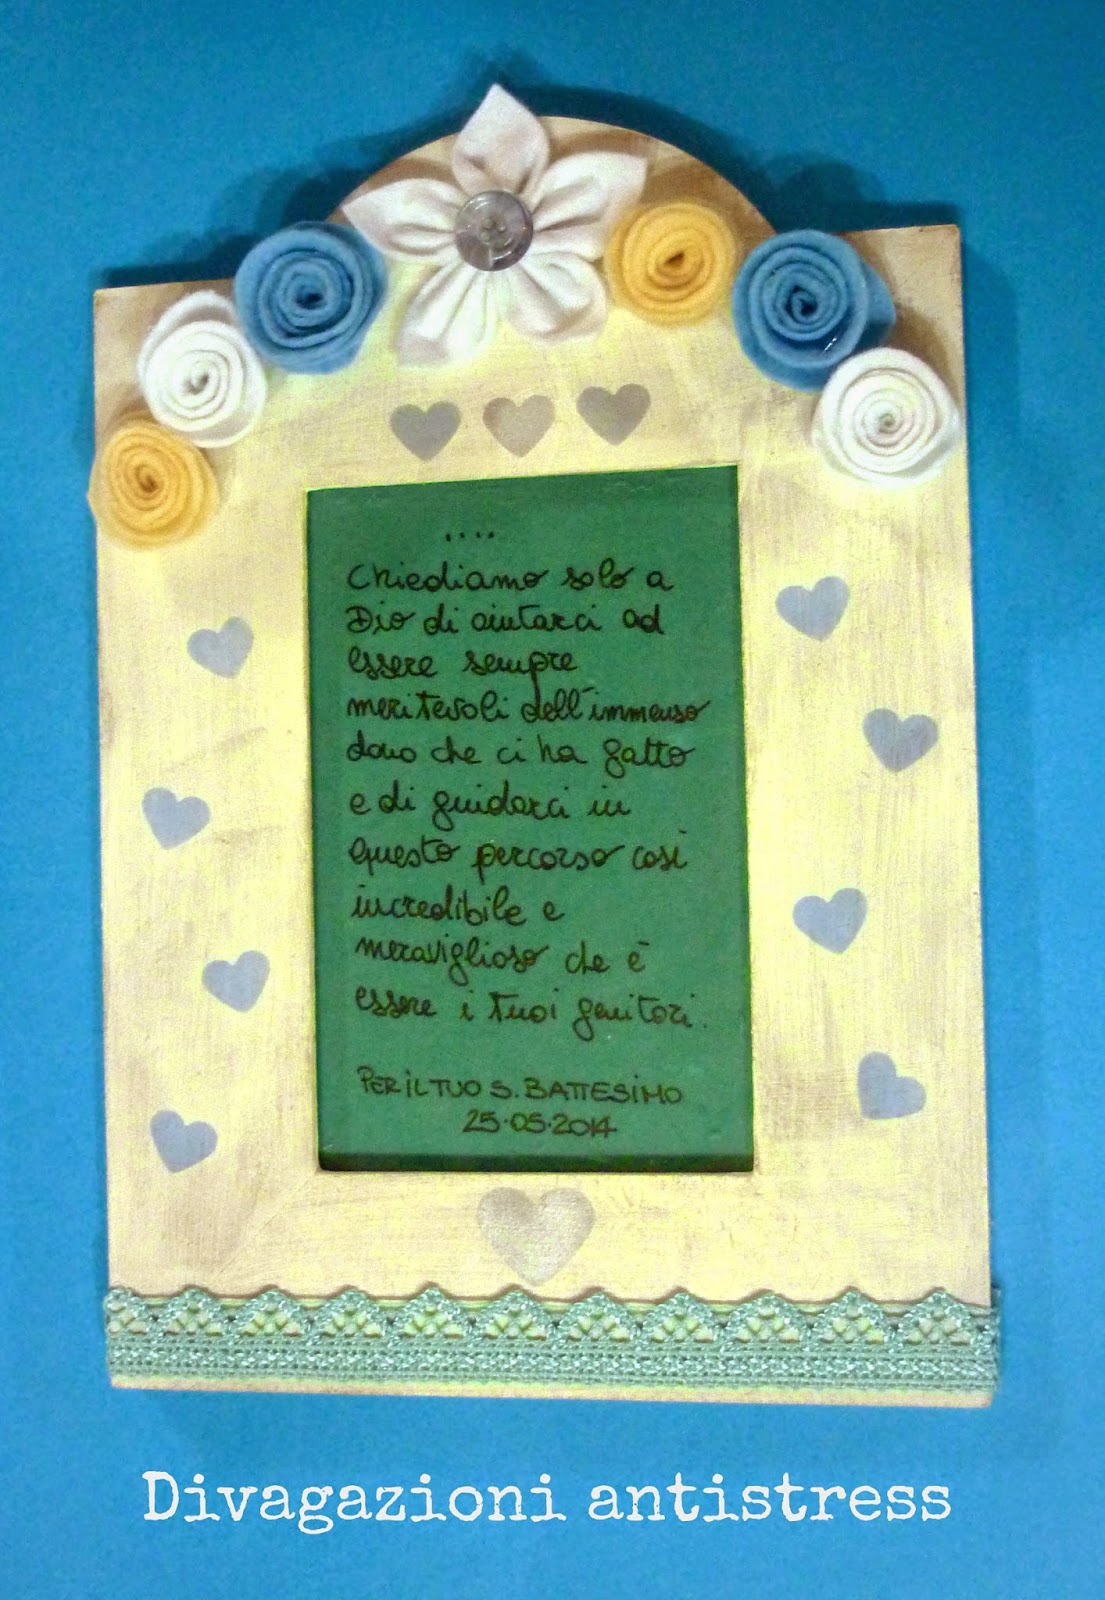 ....
Chiediamo solo a
Dio di aiutarci ad
essere sempre
meritevoli dell'immenso
dono che ci ha fatto
e di guidarci in
questo percorso così
incredibile e
meraviglioso che è
essere i tuoi genitori.
PER IL TUO S. BATTESIMO
25.05.2014
Divagazioni antistress